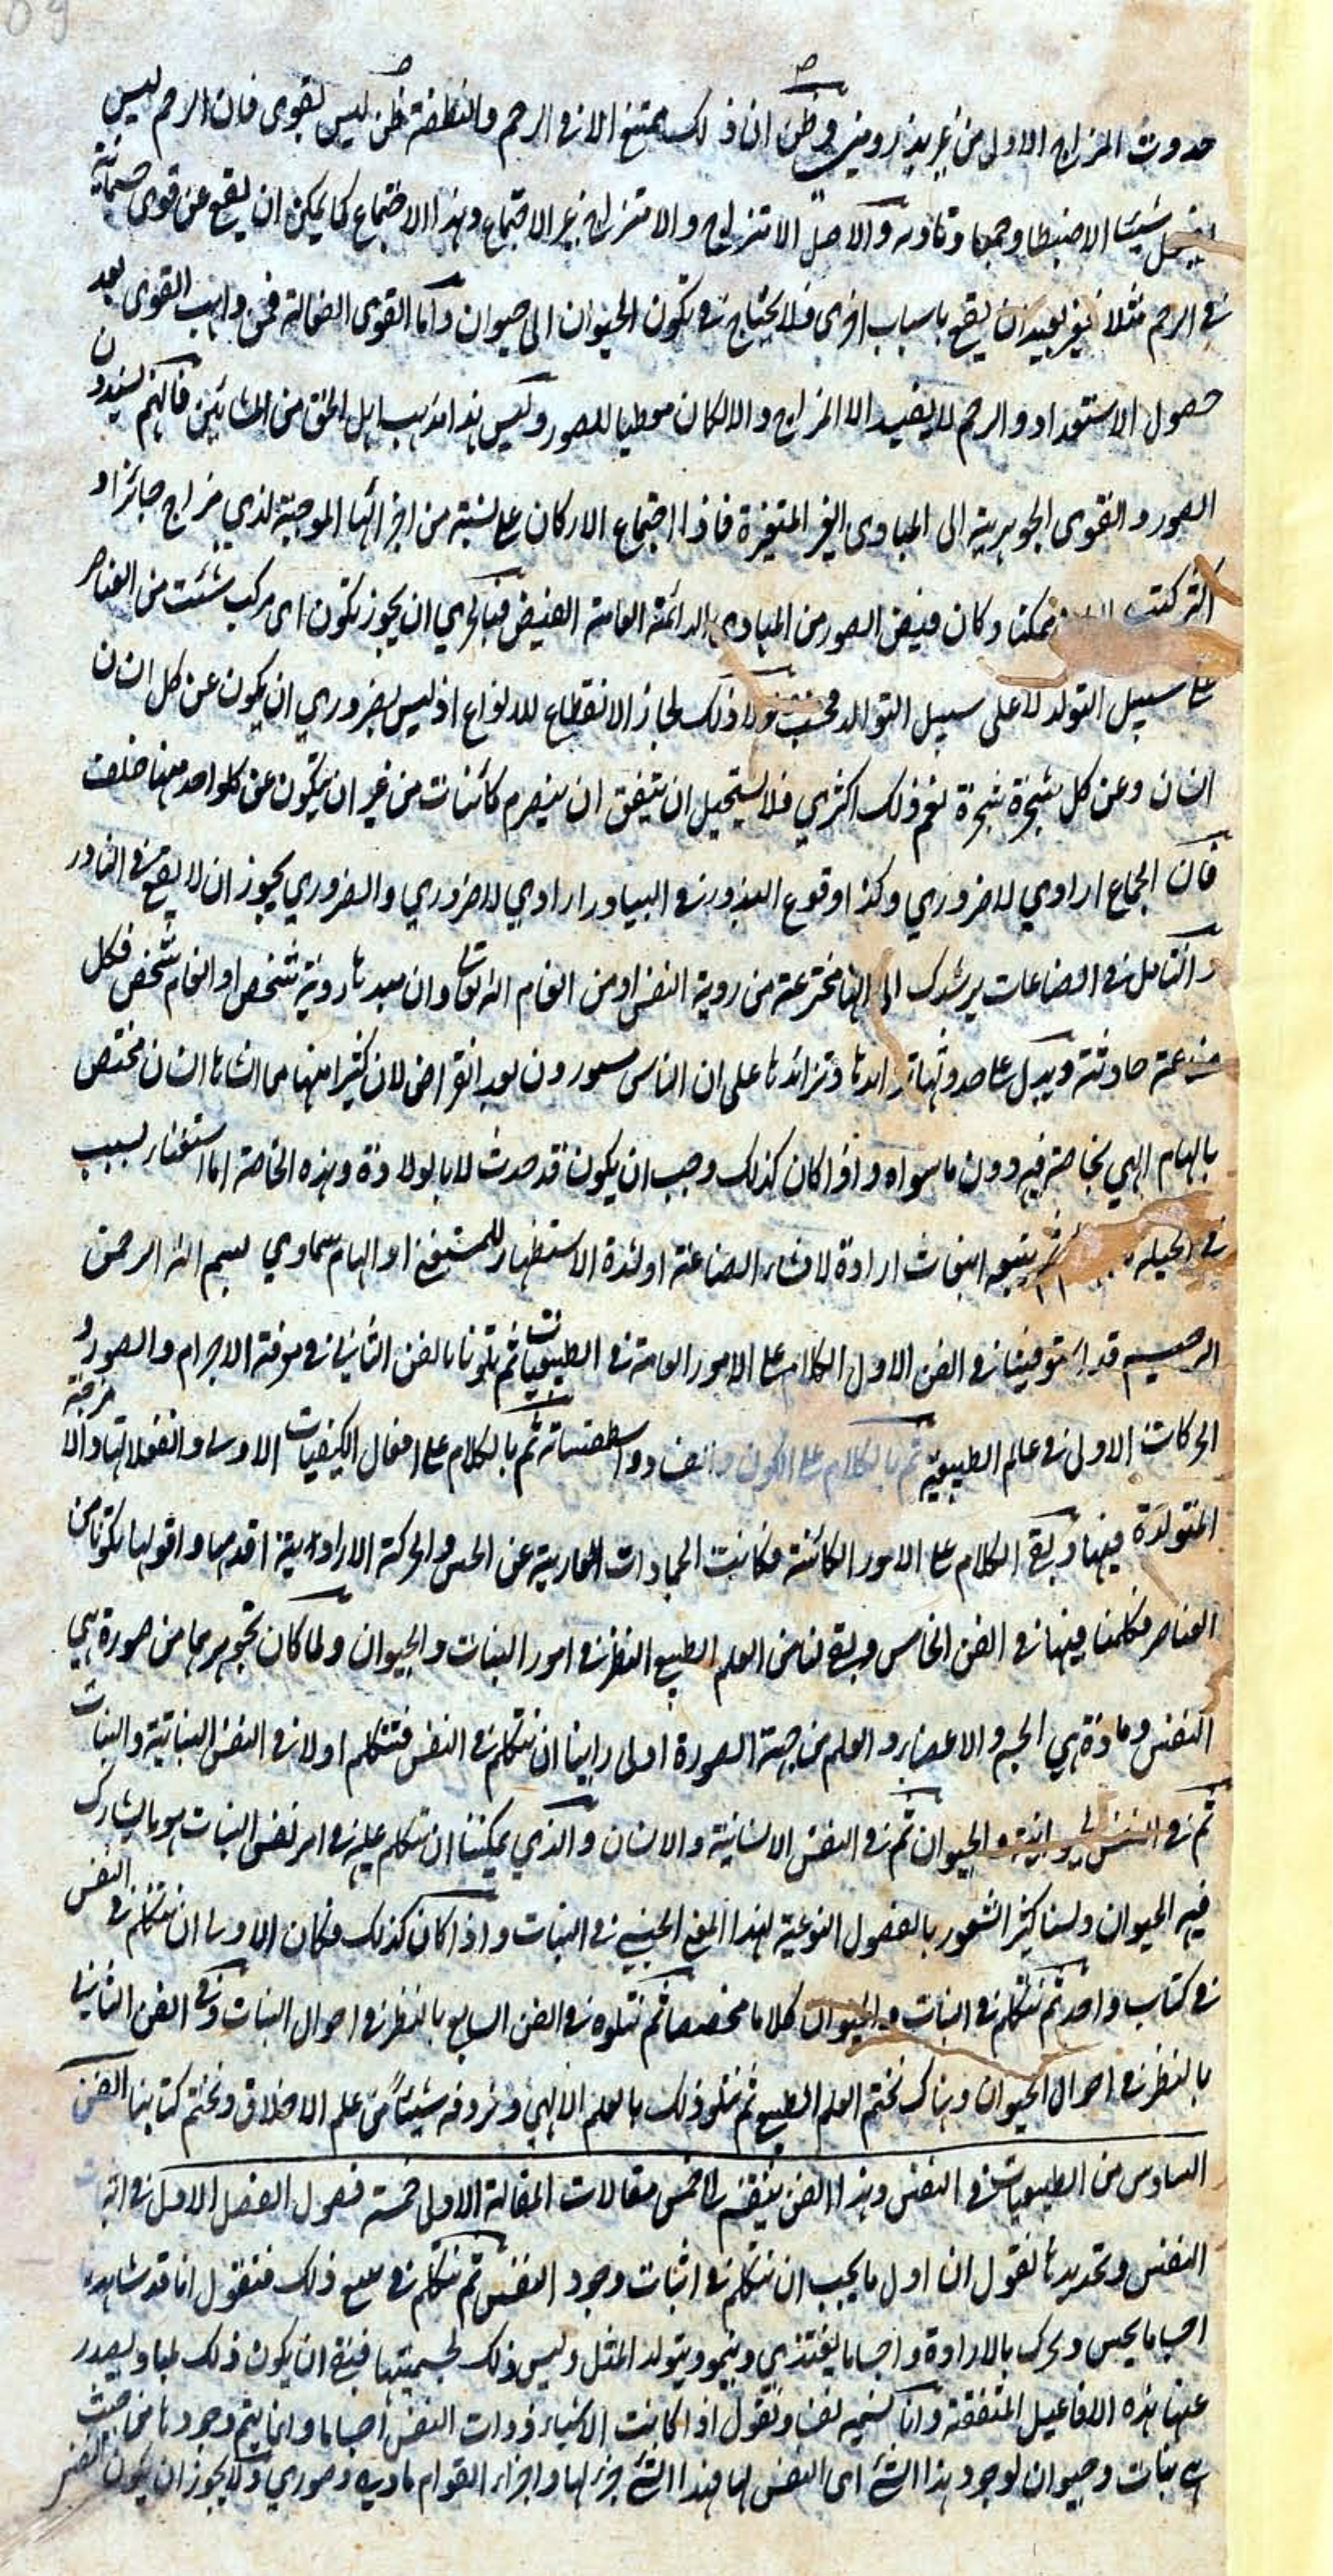 حدوث المزاج الاول من غير بذر ومنى وظن ان ذلك يمتنع الا فى الرحم والنطفة ظن ليس بقوى فان الرحم ليس
يفعل شيئا الا ضبطا وجمعا وتادية والاصل الامتزاج والامتزاج غير الاجتماع وهذا الاجتماع كما يمكن ان يقع عن قوى جسمانية
فى الرحم مثلا فغير بعيد ان يقع باسباب اخرى فلا يحتاج فى تكون الحيوان الى حيوان واما القوى الفعالة فمن واهب القوى بعد
حصول الاستعداد والرحم لا يفيد الا المزاج والا لكان معطيا للصور وليس هذا مذهب اهل الحق من المشائين فانهم يسندون
الصور والقوى الجوهرية الى المبادى الغير المتغيرة فاذا اجتماع الاركان على نسبة من اجزائها الموجبة لذي مزاج جائزا و
اكثر كنت ممكنا وكان فيض الصور من المبادى الدائمة العامة الفيض فبالحري ان يجوز تكون اى مركب شئت من العناصر
على سبيل التولد لا على سبيل التوالد فحسب ولا ذلك لجاز الانقطاع للانواع اذ ليس بضروري ان يكون عن كل انسان
انسان وعن كل شجرة شجرة نعم ذلك اكثري فلا يستحيل ان يتفق ان ينصرم كائنات من غير ان يتكون عن كلواحد منها خلف
فان الجماع ارادي لا ضروري وكذا وقوع البذور فى البيادر ارادي لا ضروري والضروري يجوز ان لا يقع فى النادر
والتامل فى الصناعات يرشدك الى انها مخترعة من روية النفس او من الهام الله تعالى وان مبدءها روية شخص او الهام شخص فكل
صنعة حادثة ويدل على حدوثها تزايدها على ان الناس يعودون بعد انقراض لان كثيرا منها مما انشاها انسان مختص
بالهام الهي بخاصة فيه دون ما سواه واذا كان كذلك وجب ان يكون قد حدث لا بالولادة وهذه الخاصة اما استغناء بسبب
فى الحيلة ثم يتبعه انبعاث ارادة لافشاء الصناعة او لشدة الاستظهار للمستغنى او الهام سماوي بسم الله الرحمن
الرحيم قد استوفينا فى الفن الاول الكلام على الامور العامة فى الطبيعيات ثم تلونا بالفن الثانى فى معرفة الاجرام والصور و
الحركات الاولى فى عالم الطبيعية ثم بالكلام على الكون والفساد واسطقساته ثم بالكلام على افعال الكيفيات الاولى وانفعالاتها والامزجة
المتولدة منها وبقى الكلام على الامور الكائنة فكانت الجمادات العارية عن الحس والحركة الارادية اقدمها واقولها تكونا من
العناصر فتكلمنا فيها فى الفن الخامس وبقى لنا من العلم الطبيعى النظر فى امور النبات والحيوان ولما كان تجوهرهما من صورة هى
النفس ومادة هى الجسم والاعضاء والعلم من جهة الصورة اولى راينا ان نتكلم فى النفس فنتكلم اولا فى النفس النباتية والنبات
ثم فى النفس الحيوانية والحيوان ثم فى النفس الانسانية والانسان والذي يمكننا ان نتكلم عليه فى امر نفس النبات هو ما يشارك
فيه الحيوان ولسنا كثير الشعور بالفصول النوعية لهذا المعنى الجنسى فى النبات واذا كان كذلك فكان الاولى ان نتكلم فى النفس
فى كتاب واحد ثم نتكلم فى النبات والحيوان كلاما مخصصا ثم نتلوه فى الفن السابع بالنظر فى احوال النبات وفى الفن الثامن
بالنظر فى احوال الحيوان وهناك نختم العلم الطبيعى ثم نتلو ذلك بالعلم الالهي ونردفه شيئا من علم الاخلاق ونختم كتابنا الفن
السادس من الطبيعيات فى النفس وهذا الفن ينقسم الى خمس مقالات المقالة الاولى خمسة فصول الفصل الاول فى اثبات
النفس وتحديدها نقول ان اول ما يجب ان نتكلم فى اثبات وجود النفس ثم نتكلم فى ما يتبع ذلك فنقول انا قد نشاهد
اجساما يحس ويحرك بالارادة واجساما يغتذي وينمو ويتولد المثل وليس ذلك لجسميتها فبقى ان يكون ذلك لمباد يصدر
عنها هذه الافاعيل المتفقة وانا نسميه نفسا ونقول اذا كانت الاشياء ذوات النفس اجساما وانما يتم وجودها من حيث
هى نبات وحيوان لوجود هذا الشئ اى النفس لها فهذا الشئ جزء لها واجزاء القوام مادية وصوري ولا يجوز ان يكون النفس